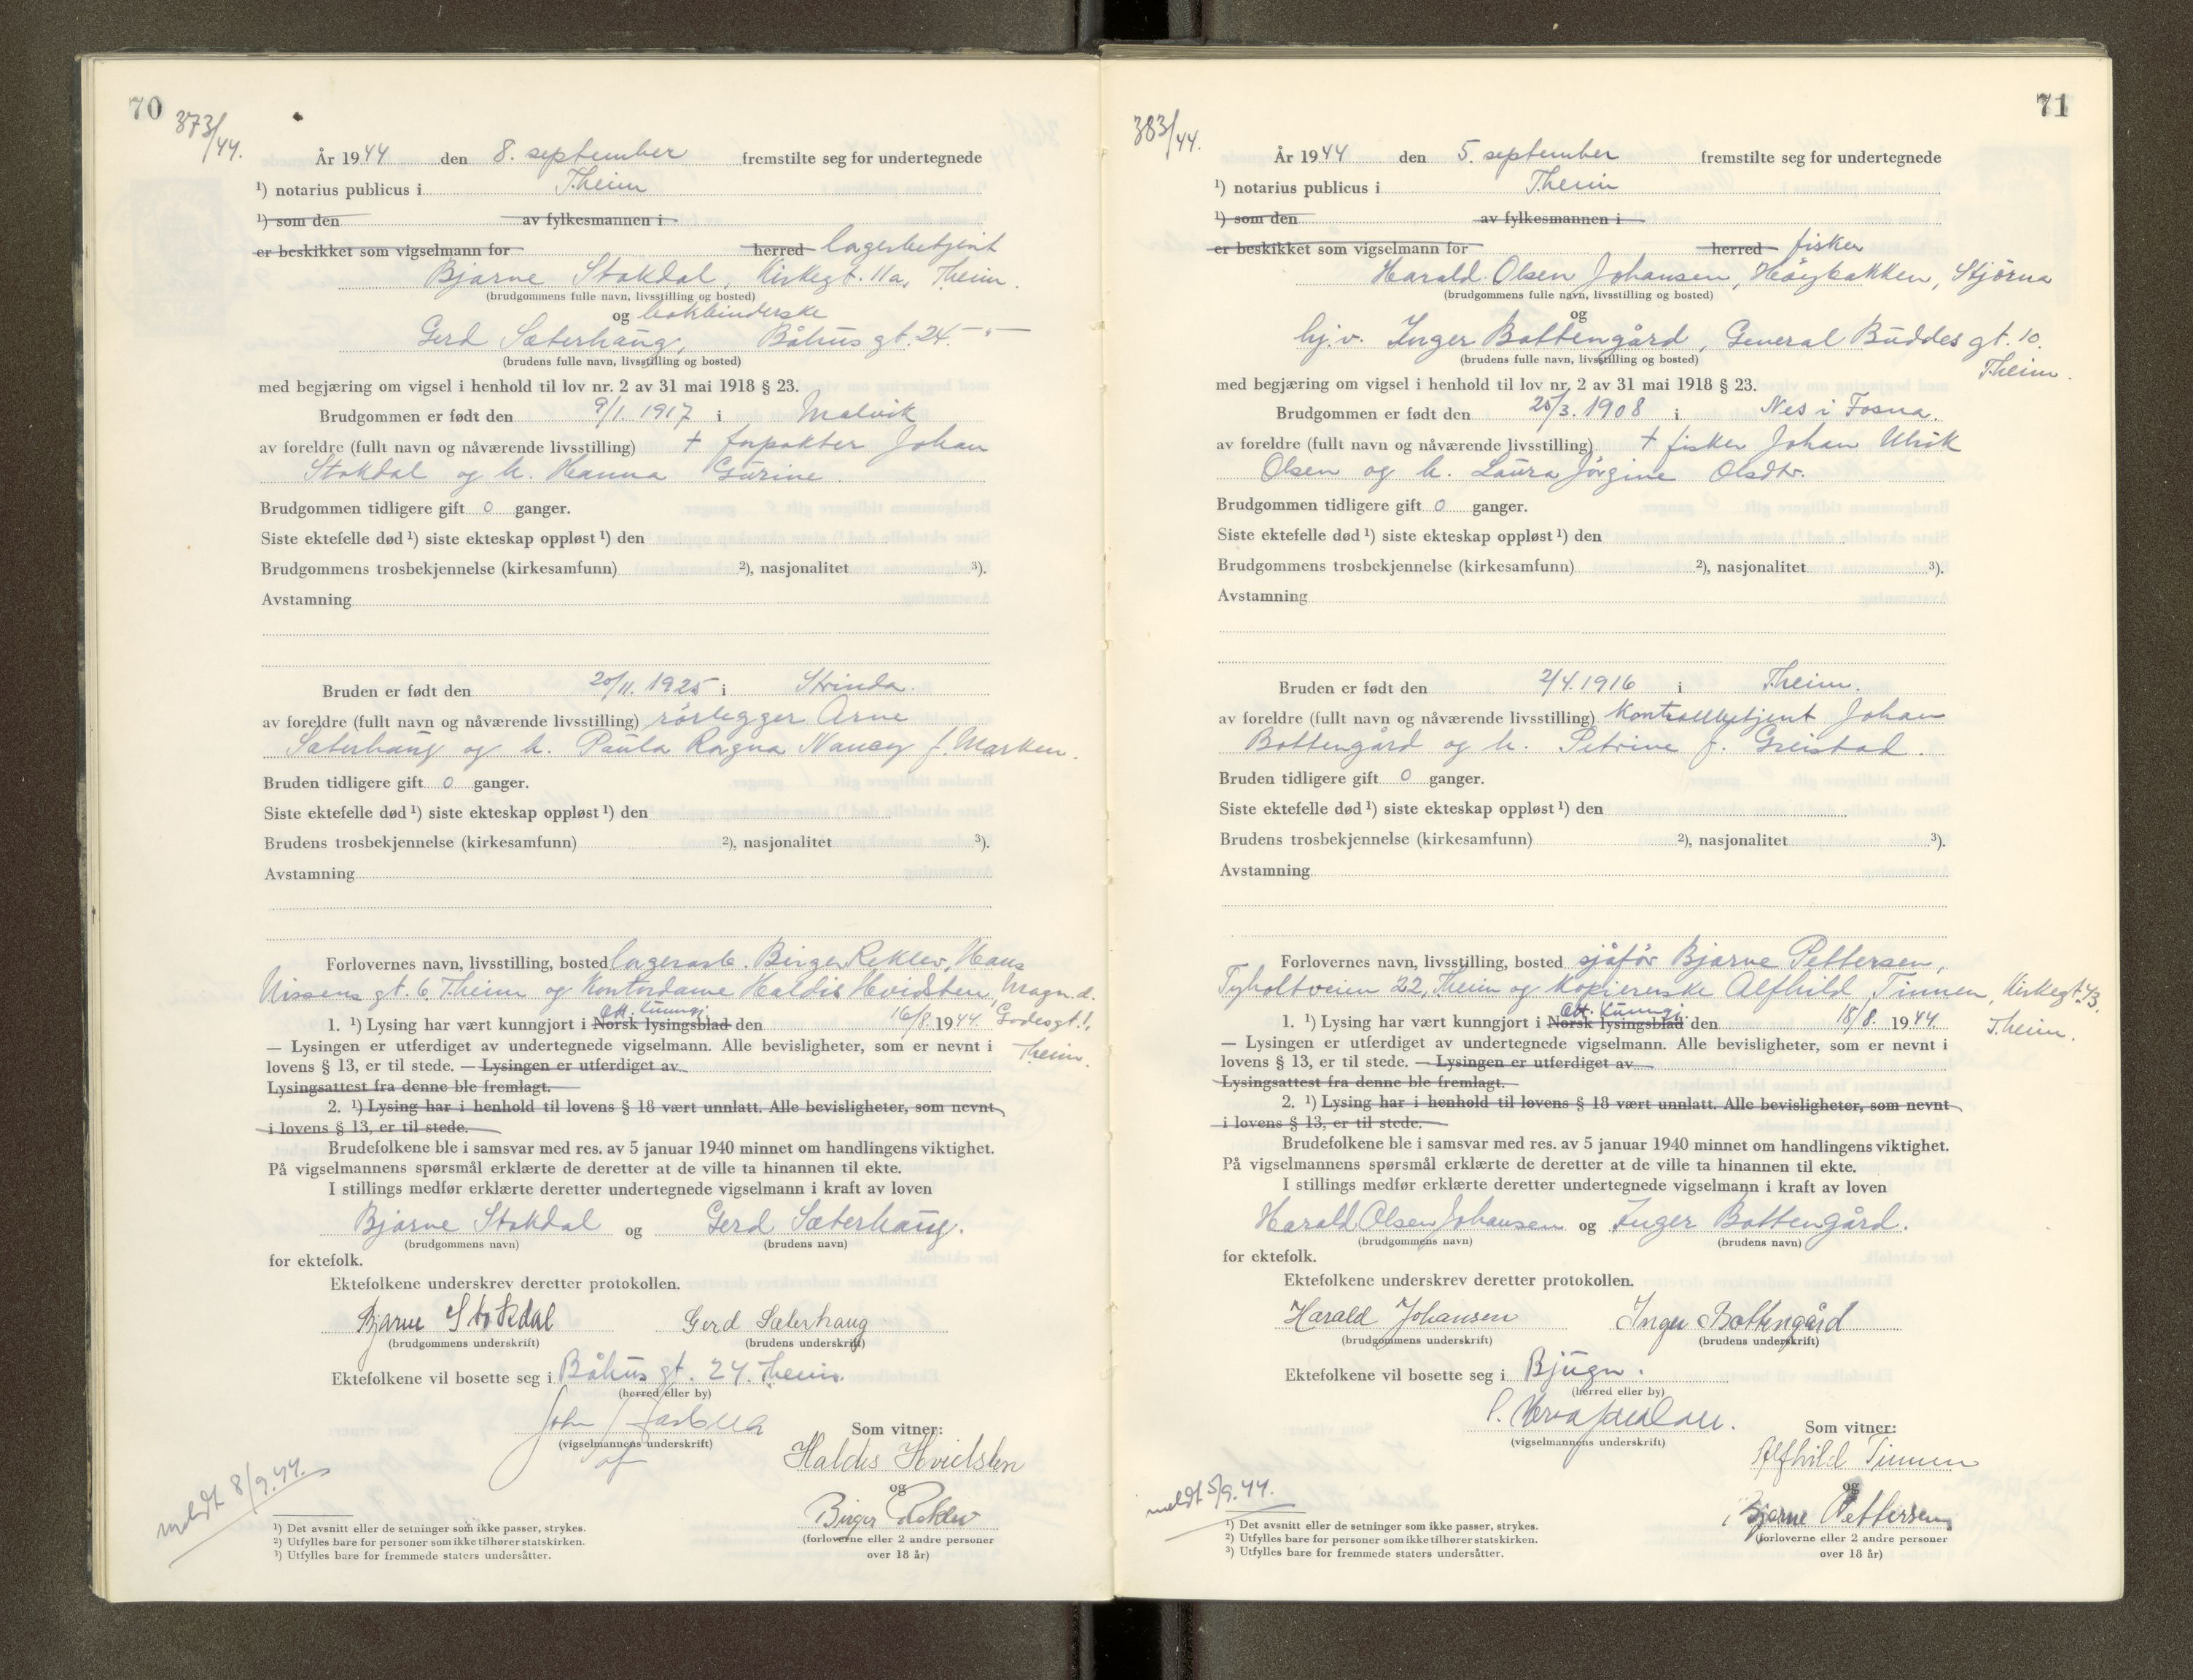 70
373/44.
År 1944 den 8. september fremstilte seg for undertegnede
¹) notarius publicus i Theim
¹) som den av fylkesmannen i
er beskikket som vigselmann for herred lagerbetjent
Bjarne Stokdal, Kirkegt. 11a, Theim.
(brudgommens fulle navn, livsstilling og bosted)
og bokbinderske
Gerd Sæterhaug, Båhus gt. 24 – " –
(brudens fulle navn, livsstilling og bosted)
med begjæring om vigsel i henhold til lov nr. 2 av 31 mai 1918 § 23.
Brudgommen er født den 9/1. 1917 i Malvik
av foreldre (fullt navn og nåværende livsstilling) + forpakter Johan
Stokdal og h. Hanna Gurine.
Brudgommen tidligere gift 0 ganger.
Siste ektefelle død ¹) siste ekteskap oppløst ¹) den
Brudgommens trosbekjennelse (kirkesamfunn) ²), nasjonalitet ³).
Avstamning
Bruden er født den 20/11. 1925 i Strinda.
av foreldre (fullt navn og nåværende livsstilling) rørlegger Arne
Sæterhaug og h. Paula Ragna Nancy f. Marken.
Bruden tidligere gift 0 ganger.
Siste ektefelle død ¹) siste ekteskap oppløst ¹) den
Brudens trosbekjennelse (kirkesamfunn) ²), nasjonalitet ³).
Avstamning
Forlovernes navn, livsstilling, bosted lagerarb. Birger Reklev, Hans
Nissens gt. 6, Theim og Kontordame Haldis Hvidsten, Magn. d.
Godesgt. 1,
Theim.
off. kunngj.
1. ¹) Lysing har vært kunngjort i Norsk lysingsblad den 16/8. 1944.
— Lysingen er utferdiget av undertegnede vigselmann. Alle bevisligheter, som er nevnt i
lovens § 13, er til stede. — Lysingen er utferdiget av
Lysingsattest fra denne ble fremlagt.
2. ¹) Lysing har i henhold til lovens § 18 vært unnlatt. Alle bevisligheter, som nevnt
i lovens § 13, er til stede.
Brudefolkene ble i samsvar med res. av 5 januar 1940 minnet om handlingens viktighet.
På vigselmannens spørsmål erklærte de deretter at de ville ta hinannen til ekte.
I stillings medfør erklærte deretter undertegnede vigselmann i kraft av loven
Bjarne Stokdal og Gerd Sæterhaug.
(brudgommens navn) (brudens navn)
for ektefolk.
Ektefolkene underskrev deretter protokollen.
Bjarne Stokdal Gerd Sæterhaug
(brudgommens underskrift) (brudens underskrift)
Ektefolkene vil bosette seg i Båhus gt. 24. Theim.
(herred eller by)
John
(vigselmannens underskrift)
Som vitner:
Haldis Hvidsten
og
Birger Reklev
(forloverne eller 2 andre personer
over 18 år)
meldt 8/9.44.
¹) Det avsnitt eller de setninger som ikke passer, strykes.
²) Utfylles bare for personer som ikke tilhører statskirken.
³) Utfylles bare for fremmede staters undersåtter.
71
383/44.
År 1944 den 5. september fremstilte seg for undertegnede
¹) notarius publicus i Theim
¹) som den av fylkesmannen i
er beskikket som vigselmann for herred fisker
Harald Olsen Johansen, Høgbakken, Stjørna
(brudgommens fulle navn, livsstilling og bosted)
og
hj.v. Inger Bottengård, General Buddes gt. 10.
Theim.
(brudens fulle navn, livsstilling og bosted)
med begjæring om vigsel i henhold til lov nr. 2 av 31 mai 1918 § 23.
Brudgommen er født den 25/3. 1908 i Nes i Fosna.
av foreldre (fullt navn og nåværende livsstilling) + fisker Johan Ulrik
Olsen og h. Laura Jørgine Olsdtr.
Brudgommen tidligere gift 0 ganger.
Siste ektefelle død ¹) siste ekteskap oppløst ¹) den
Brudgommens trosbekjennelse (kirkesamfunn) ²), nasjonalitet ³).
Avstamning
Bruden er født den 2/4. 1916 i Theim.
av foreldre (fullt navn og nåværende livsstilling) Kontrollbetjent Johan
Bottengård og h. Petrine f. Greistad.
Bruden tidligere gift 0 ganger.
Siste ektefelle død ¹) siste ekteskap oppløst ¹) den
Brudens trosbekjennelse (kirkesamfunn) ²), nasjonalitet ³).
Avstamning
Forlovernes navn, livsstilling, bosted sjåfør Bjarne Pettersen,
Tyholtveien 22, Theim og kopiererske Alfhild Tinnen, Kirkegt. 43
Theim.
off. kunngj.
1. ¹) Lysing har vært kunngjort i Norsk lysingsblad den 18/8. 1944.
— Lysingen er utferdiget av undertegnede vigselmann. Alle bevisligheter, som er nevnt i
lovens § 13, er til stede. — Lysingen er utferdiget av
Lysingsattest fra denne ble fremlagt.
2. ¹) Lysing har i henhold til lovens § 18 vært unnlatt. Alle bevisligheter, som nevnt
i lovens § 13, er til stede.
Brudefolkene ble i samsvar med res. av 5 januar 1940 minnet om handlingens viktighet.
På vigselmannens spørsmål erklærte de deretter at de ville ta hinannen til ekte.
I stillings medfør erklærte deretter undertegnede vigselmann i kraft av loven
Harald Olsen Johansen og Inger Bottengård.
(brudgommens navn) (brudens navn)
for ektefolk.
Ektefolkene underskrev deretter protokollen.
Harald Johansen Inger Bottengård
(brudgommens underskrift) (brudens underskrift)
Ektefolkene vil bosette seg i Bjugn.
(herred eller by)
(vigselmannens underskrift)
Som vitner:
Alfhild Tinnen
og
Bjarne Pettersen
(forloverne eller 2 andre personer
over 18 år)
meldt 5/9.44.
¹) Det avsnitt eller de setninger som ikke passer, strykes.
²) Utfylles bare for personer som ikke tilhører statskirken.
³) Utfylles bare for fremmede staters undersåtter.